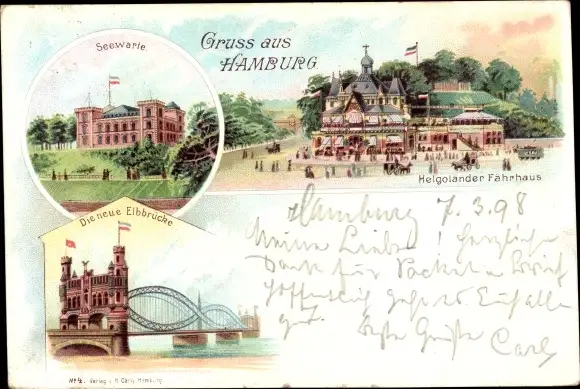 Seewarte
Gruss aus
HAMBURG.
Helgoländer Fährhaus
Die neue Elbbrücke
Hamburg 7.3.98
Meine Lieben! Herzlichen
Dank für Packet u. Brief
Hoffentlich geht es Euch allen
gut. Beste Grüße
Carl
Verlag v. Hamburg